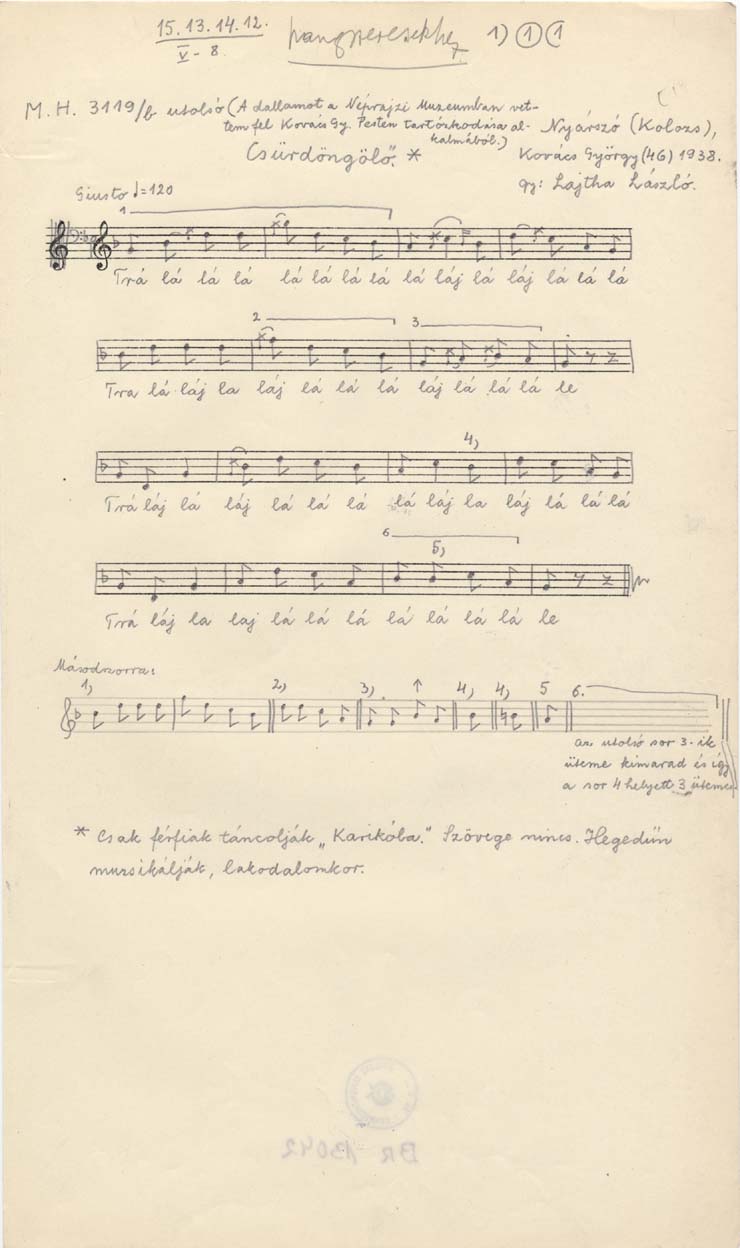 15. 13. 14. 12.
V - 8.
hangszeresekhez 1) 1 (1
M. H. 3119/b utolsó (A dallamot a Néprajzi Muzeumban vet-
tem fel Kovács Gy. Pesten tartózkodása al-
kalmából.)
Nyárszó (Kolozs),
"Csürdöngölő". *
Kovács György (46) 1938.
gy: Lajtha László.
Giusto ♩=120
1
Trá lá lá lá lá lá lá lá lá láj lá láj lá lá lá
2 3
Tra lá láj la láj lá lá lá láj lá lá lá le
4)
Trá láj lá láj lá lá lá lá láj la láj lá lá lá
6
5)
Trá láj la laj lá lá lá lá lá lá lá le
Másodszorra:
1) 2) 3) ↑ 4) 4) 5 6.
az utolsó sor 3-ik
üteme kimarad és így
a sor 4 helyett 3 ütemes
* Csak férfiak táncolják „Karikóba." Szövege nincs. Hegedün
muzsikálják, lakodalomkor.
BR 13042